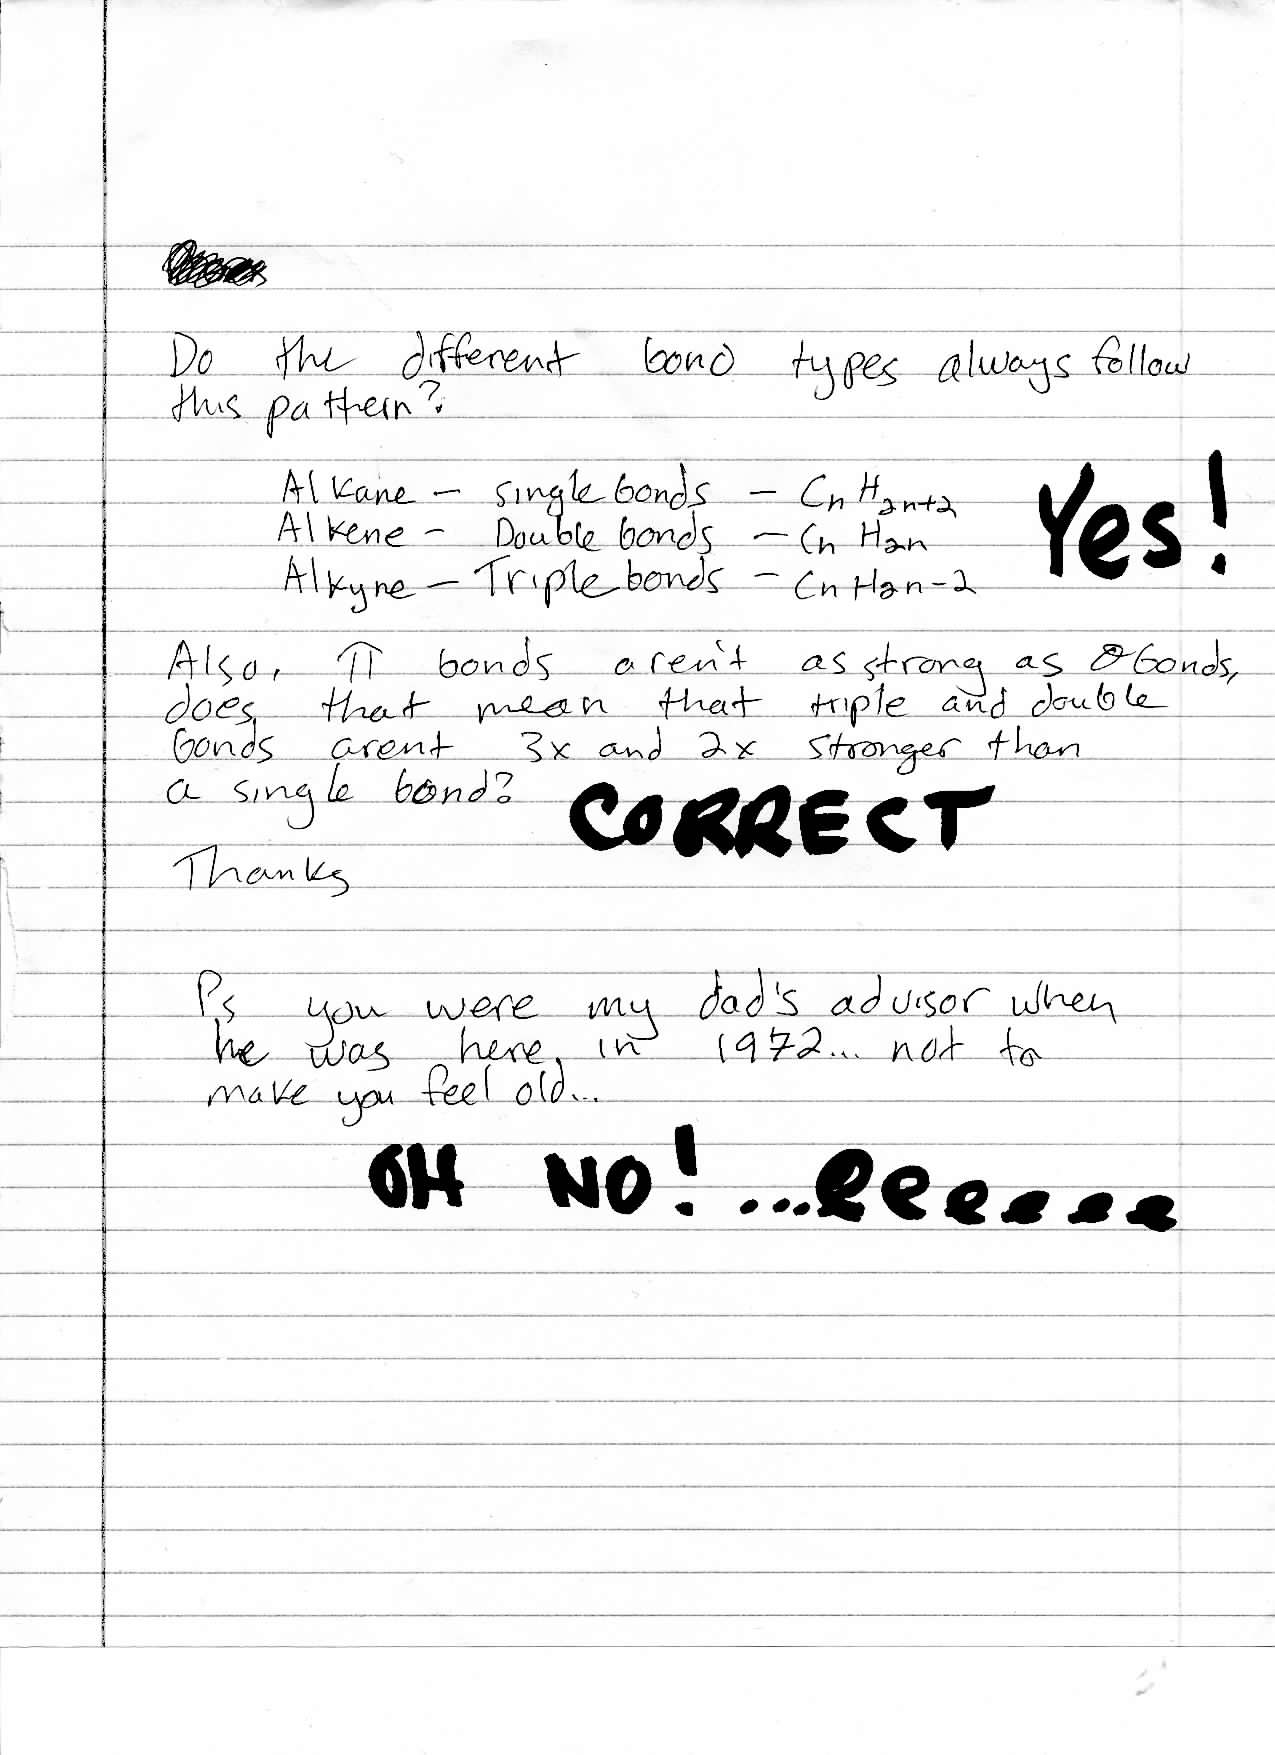 Do the different bond types always follow
this pattern?
Alkane - single bonds - CnH2n+2
Alkene - Double bonds - CnH2n
Alkyne - Triple bonds - CnH2n-2
Yes!
Also, π bonds aren't as strong as σ bonds,
does that mean that triple and double
bonds arent 3x and 2x stronger than
a single bond?
CORRECT
Thanks
Ps you were my dad's advisor when
he was here, in 1972... not to
make you feel old...
OH NO!...eeeeee